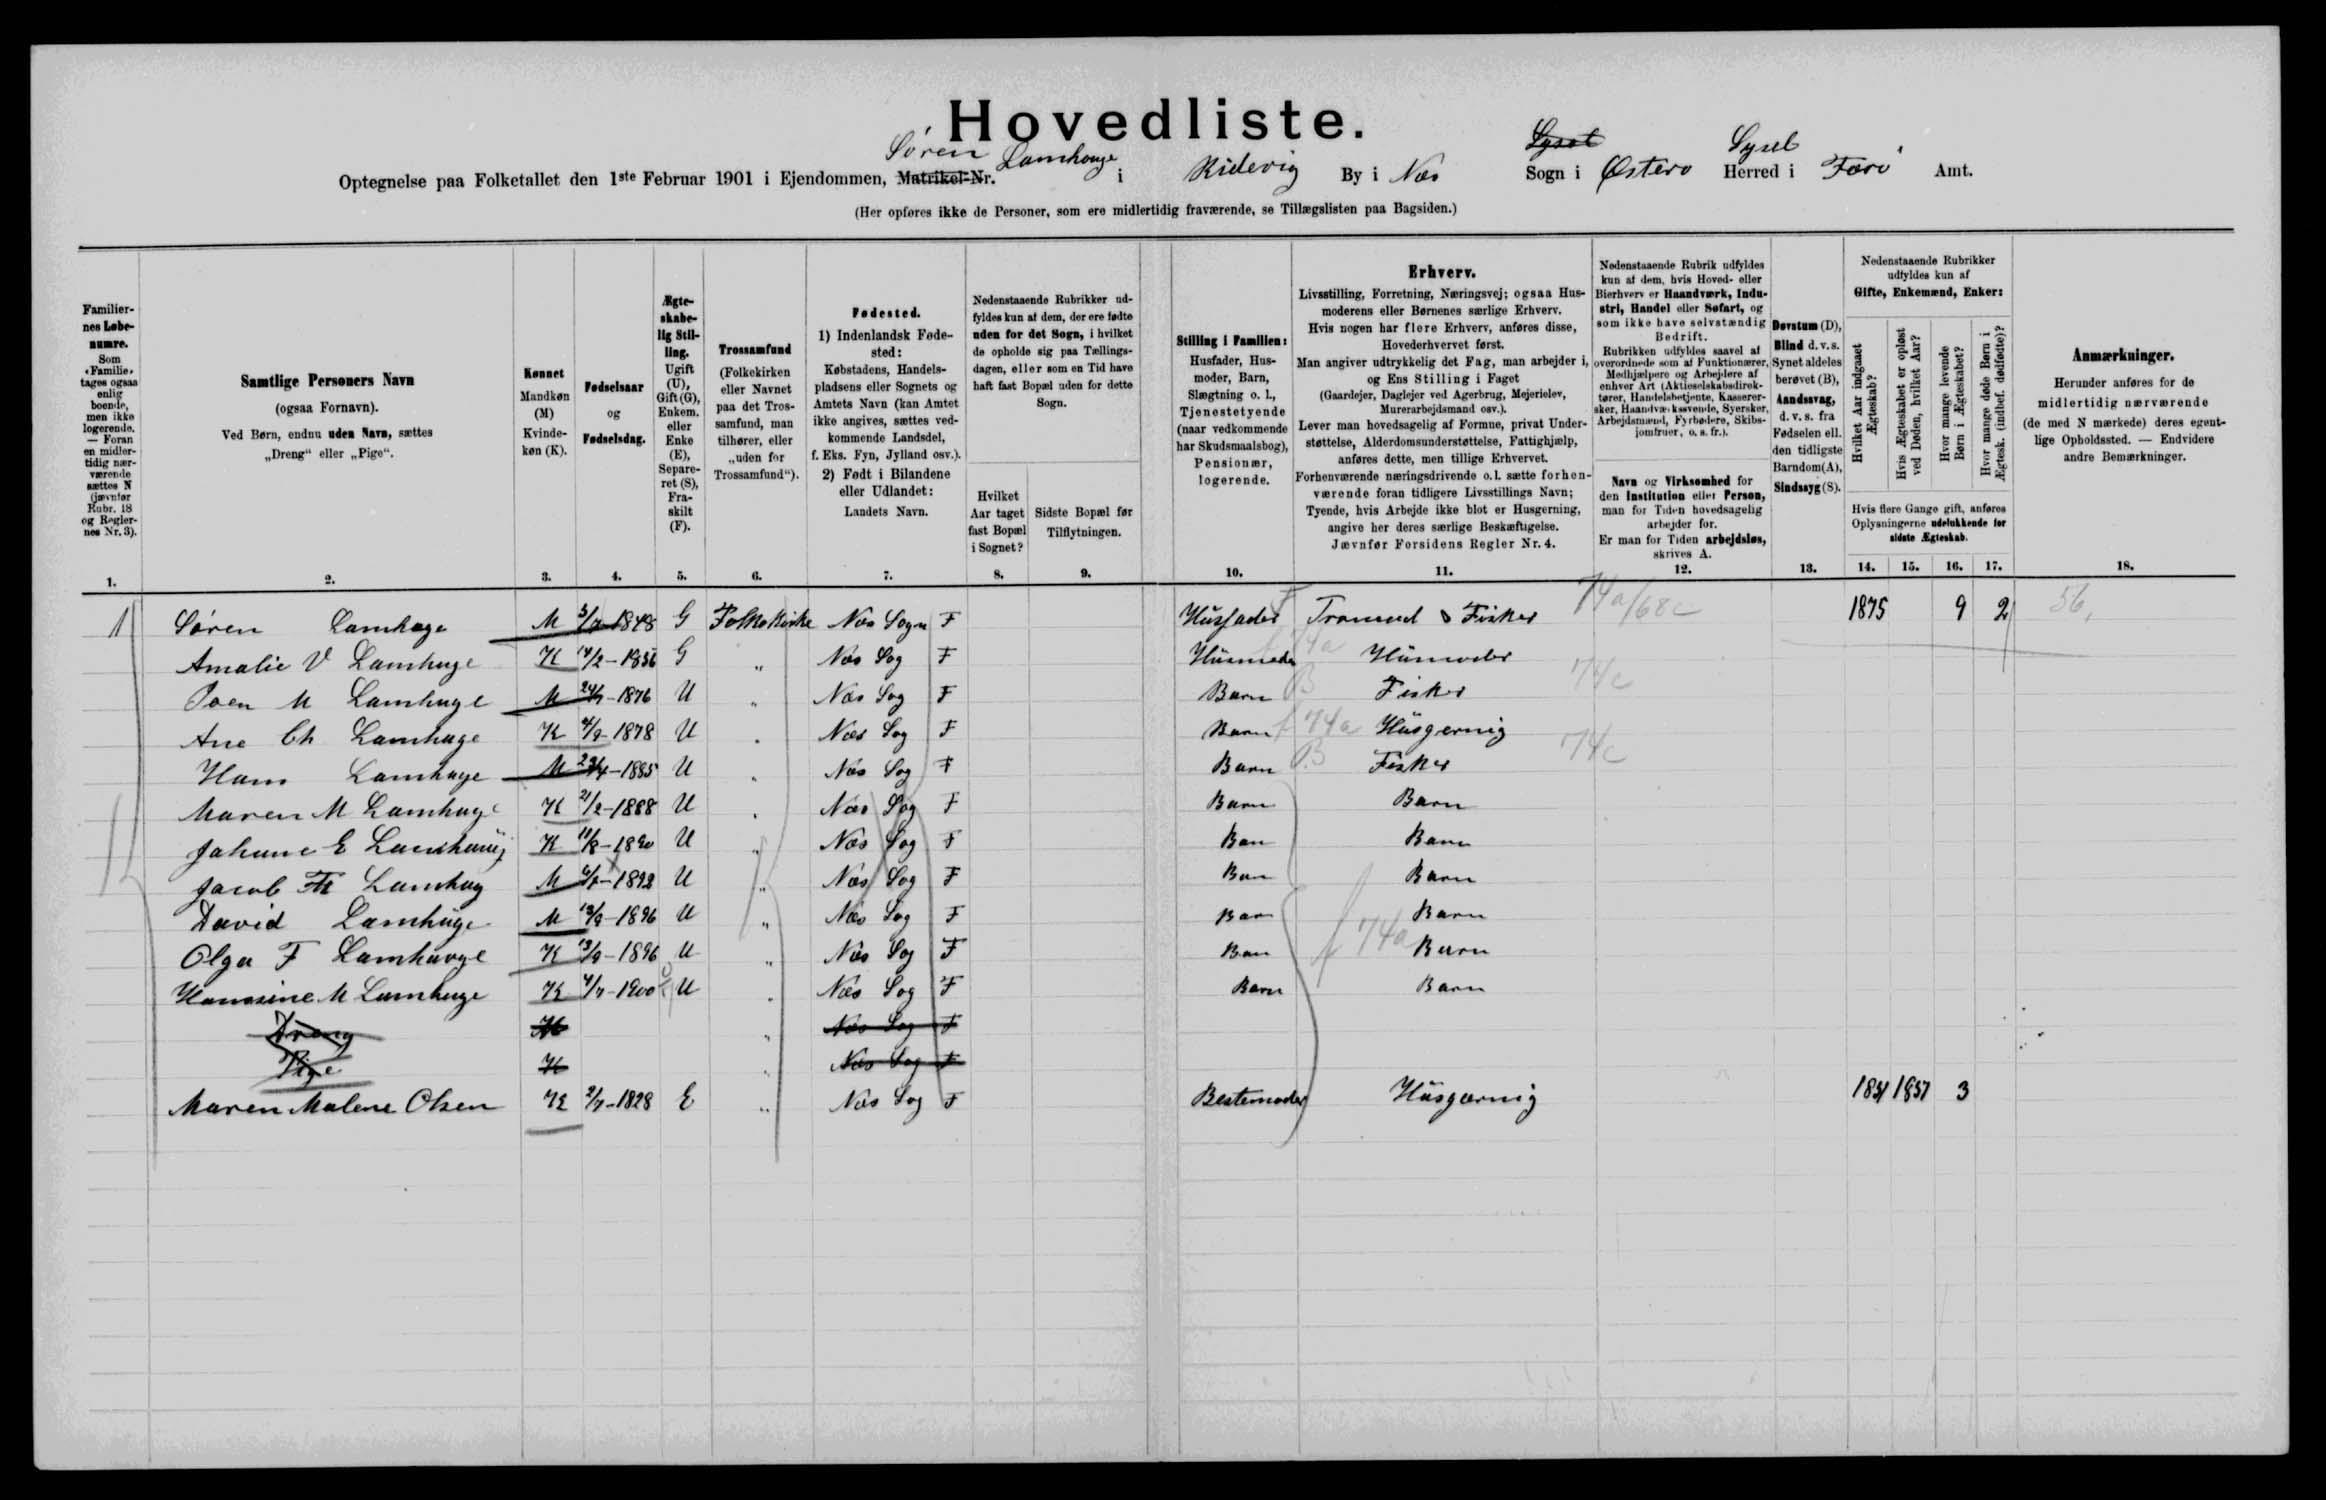 Hovedliste.
Optegnelse paa Folketallet den 1ste Februar 1901 i Ejendommen, Matrikel-Nr. Søren Lamhauge i Ridevig By i Næs Syssel Sogn i Østerø Syssel Herred i Færø Amt.
(Her opføres ikke de Personer, som ere midlertidig fraværende, se Tillægslisten paa Bagsiden.)
Familiernes Løbenumre. Som «Familie» tages ogsaa enlig boende, men ikke logerende. — Foran en midlertidig nærværende sættes N (jævnfør Rubr. 18 og Reglernes Nr. 3).
Samtlige Personers Navn (ogsaa Fornavn). Ved Børn, endnu uden Navn, sættes „Dreng“ eller „Pige“.
Kønnet Mandkøn (M) Kvindekøn (K).
Fødselsaar og Fødselsdag.
Ægteskabelig Stilling. Ugift (U), Gift (G), Enkem. eller Enke (E), Separeret (S), Fraskilt (F).
Trossamfund (Folkekirken eller Navnet paa det Trossamfund, man tilhører, eller „uden for Trossamfund“).
Fødested. 1) Indenlandsk Fødested: Købstadens, Handelspladsens eller Sognets og Amtets Navn (kan Amtet ikke angives, sættes vedkommende Landsdel, f. Eks. Fyn, Jylland osv.). 2) Født i Bilandene eller Udlandet: Landets Navn.
Nedenstaaende Rubrikker udfyldes kun af dem, der ere fødte uden for det Sogn, i hvilket de opholde sig paa Tællingsdagen, eller som en Tid have haft fast Bopæl uden for dette Sogn.
Hvilket Aar taget fast Bopæl i Sognet?
Sidste Bopæl før Tilflytningen.
Stilling i Familien: Husfader, Husmoder, Barn, Slægtning o. l., Tjenestetyende (naar vedkommende har Skudsmaalsbog), Pensionær, logerende.
Erhverv. Livsstilling, Forretning, Næringsvej; ogsaa Husmoderens eller Børnenes særlige Erhverv. Hvis nogen har flere Erhverv, anføres disse, Hovederhvervet først. Man angiver udtrykkelig det Fag, man arbejder i, og Ens Stilling i Faget (Gaardejer, Daglejer ved Agerbrug, Mejerielev, Murerarbejdsmand osv.). Lever man hovedsagelig af Formue, privat Understøttelse, Alderdomsunderstøttelse, Fattighjælp, anføres dette, men tillige Erhvervet. Forhenværende næringsdrivende o. l. sætte forhenværende foran tidligere Livsstillings Navn; Tyende, hvis Arbejde ikke blot er Husgerning, angive her deres særlige Beskæftigelse. Jævnfør Forsidens Regler Nr. 4.
Nedenstaaende Rubrik udfyldes kun af dem, hvis Hoved- eller Bierhverv er Haandværk, Industri, Handel eller Søfart, og som ikke have selvstændig Bedrift. Rubrikken udfyldes saavel af overordnede som af Funktionærer, Medhjælpere og Arbejdere af enhver Art (Aktieselskabsdirektører, Handelsbetjente, Kasserersker, Haandværkssvende, Syersker, Arbejdsmænd, Fyrbødere, Skibsjomfruer, o. s. fr.).
Navn og Virksomhed for den Institution eller Person, man for Tiden hovedsagelig arbejder for. Er man for Tiden arbejdsløs, skrives A.
Døvstum (D), Blind d. v. s. Synet aldeles berøvet (B), Aandssvag, d. v. s. fra Fødselen ell. den tidligste Barndom (A), Sindssyg (S).
Nedenstaaende Rubrikker udfyldes kun af Gifte, Enkemænd, Enker:
Hvilket Aar indgaaet Ægteskab?
Hvis Ægteskabet er opløst ved Døden, hvilket Aar?
Hvor mange levende Børn i Ægteskabet?
Hvor mange døde Børn i Ægtesk. (indbef. dødfødte)?
Hvis flere Gange gift, anføres Oplysningerne udelukkende for sidste Ægteskab.
Anmærkninger. Herunder anføres for de midlertidig nærværende (de med N mærkede) deres egentlige Opholdssted. — Endvidere andre Bemærkninger.
1. 2. 3. 4. 5. 6. 7. 8. 9. 10. 11. 12. 13. 14. 15. 16. 17. 18.
1 Søren Lamhage M 3/7-1848 G Folkekirke Næs Sogn F Husfader F Fisker 74a/68c 1875 9 2 56,
Amalie V Lamhuge K 14/2-1856 G „ Næs Sog F Husmoder f 74a Husmoder
Poen M Lamhuge M 24/7-1876 U „ Næs Sog F Barn B Fisker 74c
Ane Ch Lamhage K 4/9-1878 U „ Næs Sog F Barn f 74a Husgernig
Hans Lamhage M 23/4-1885 U „ Næs Sog F Barn B Fisker 74c
Maren M Lamhuge K 21/2-1888 U „ Næs Sog F Barn Barn
Johane E Lamhauig K 11/8-1890 U „ Næs Sog F Ban Barn
Jacob Th Lamhug M 6/8-1892 U „ Næs Sog F Ban Barn
David Lamhuge M 13/9-1896 U „ Næs Sog F Barn Barn
Olga F Lamhavge K 13/9-1896 U „ Næs Sog F Ban f 74a Barn
Hansine M Lamhuge K 4/7-1900 U „ Næs Sog F Barn Barn
Dreng M „ Næs Sog F
Pige K „ Næs Sog F
Maren Malene Olsen K 2/7-1828 E „ Næs Sog F Bestemoder Husgærnig 1851 1857 3